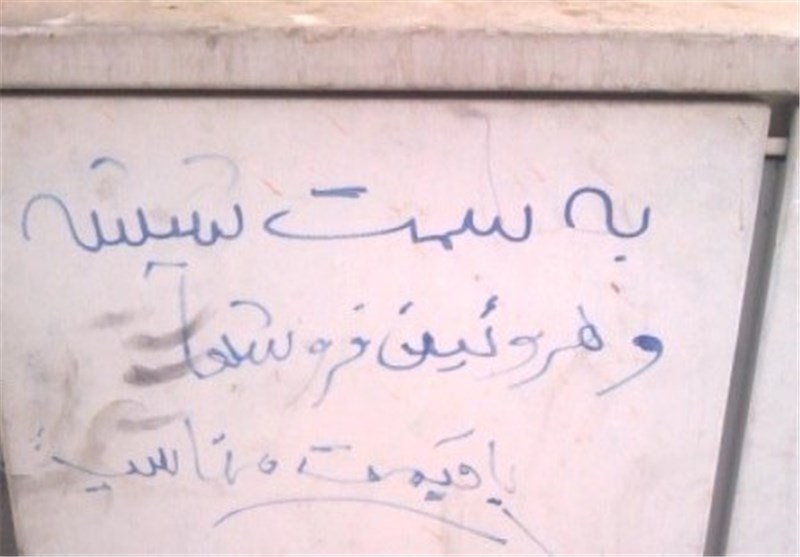 به سمت شیشه
و هروئین فروشها
با قیمت مناسب